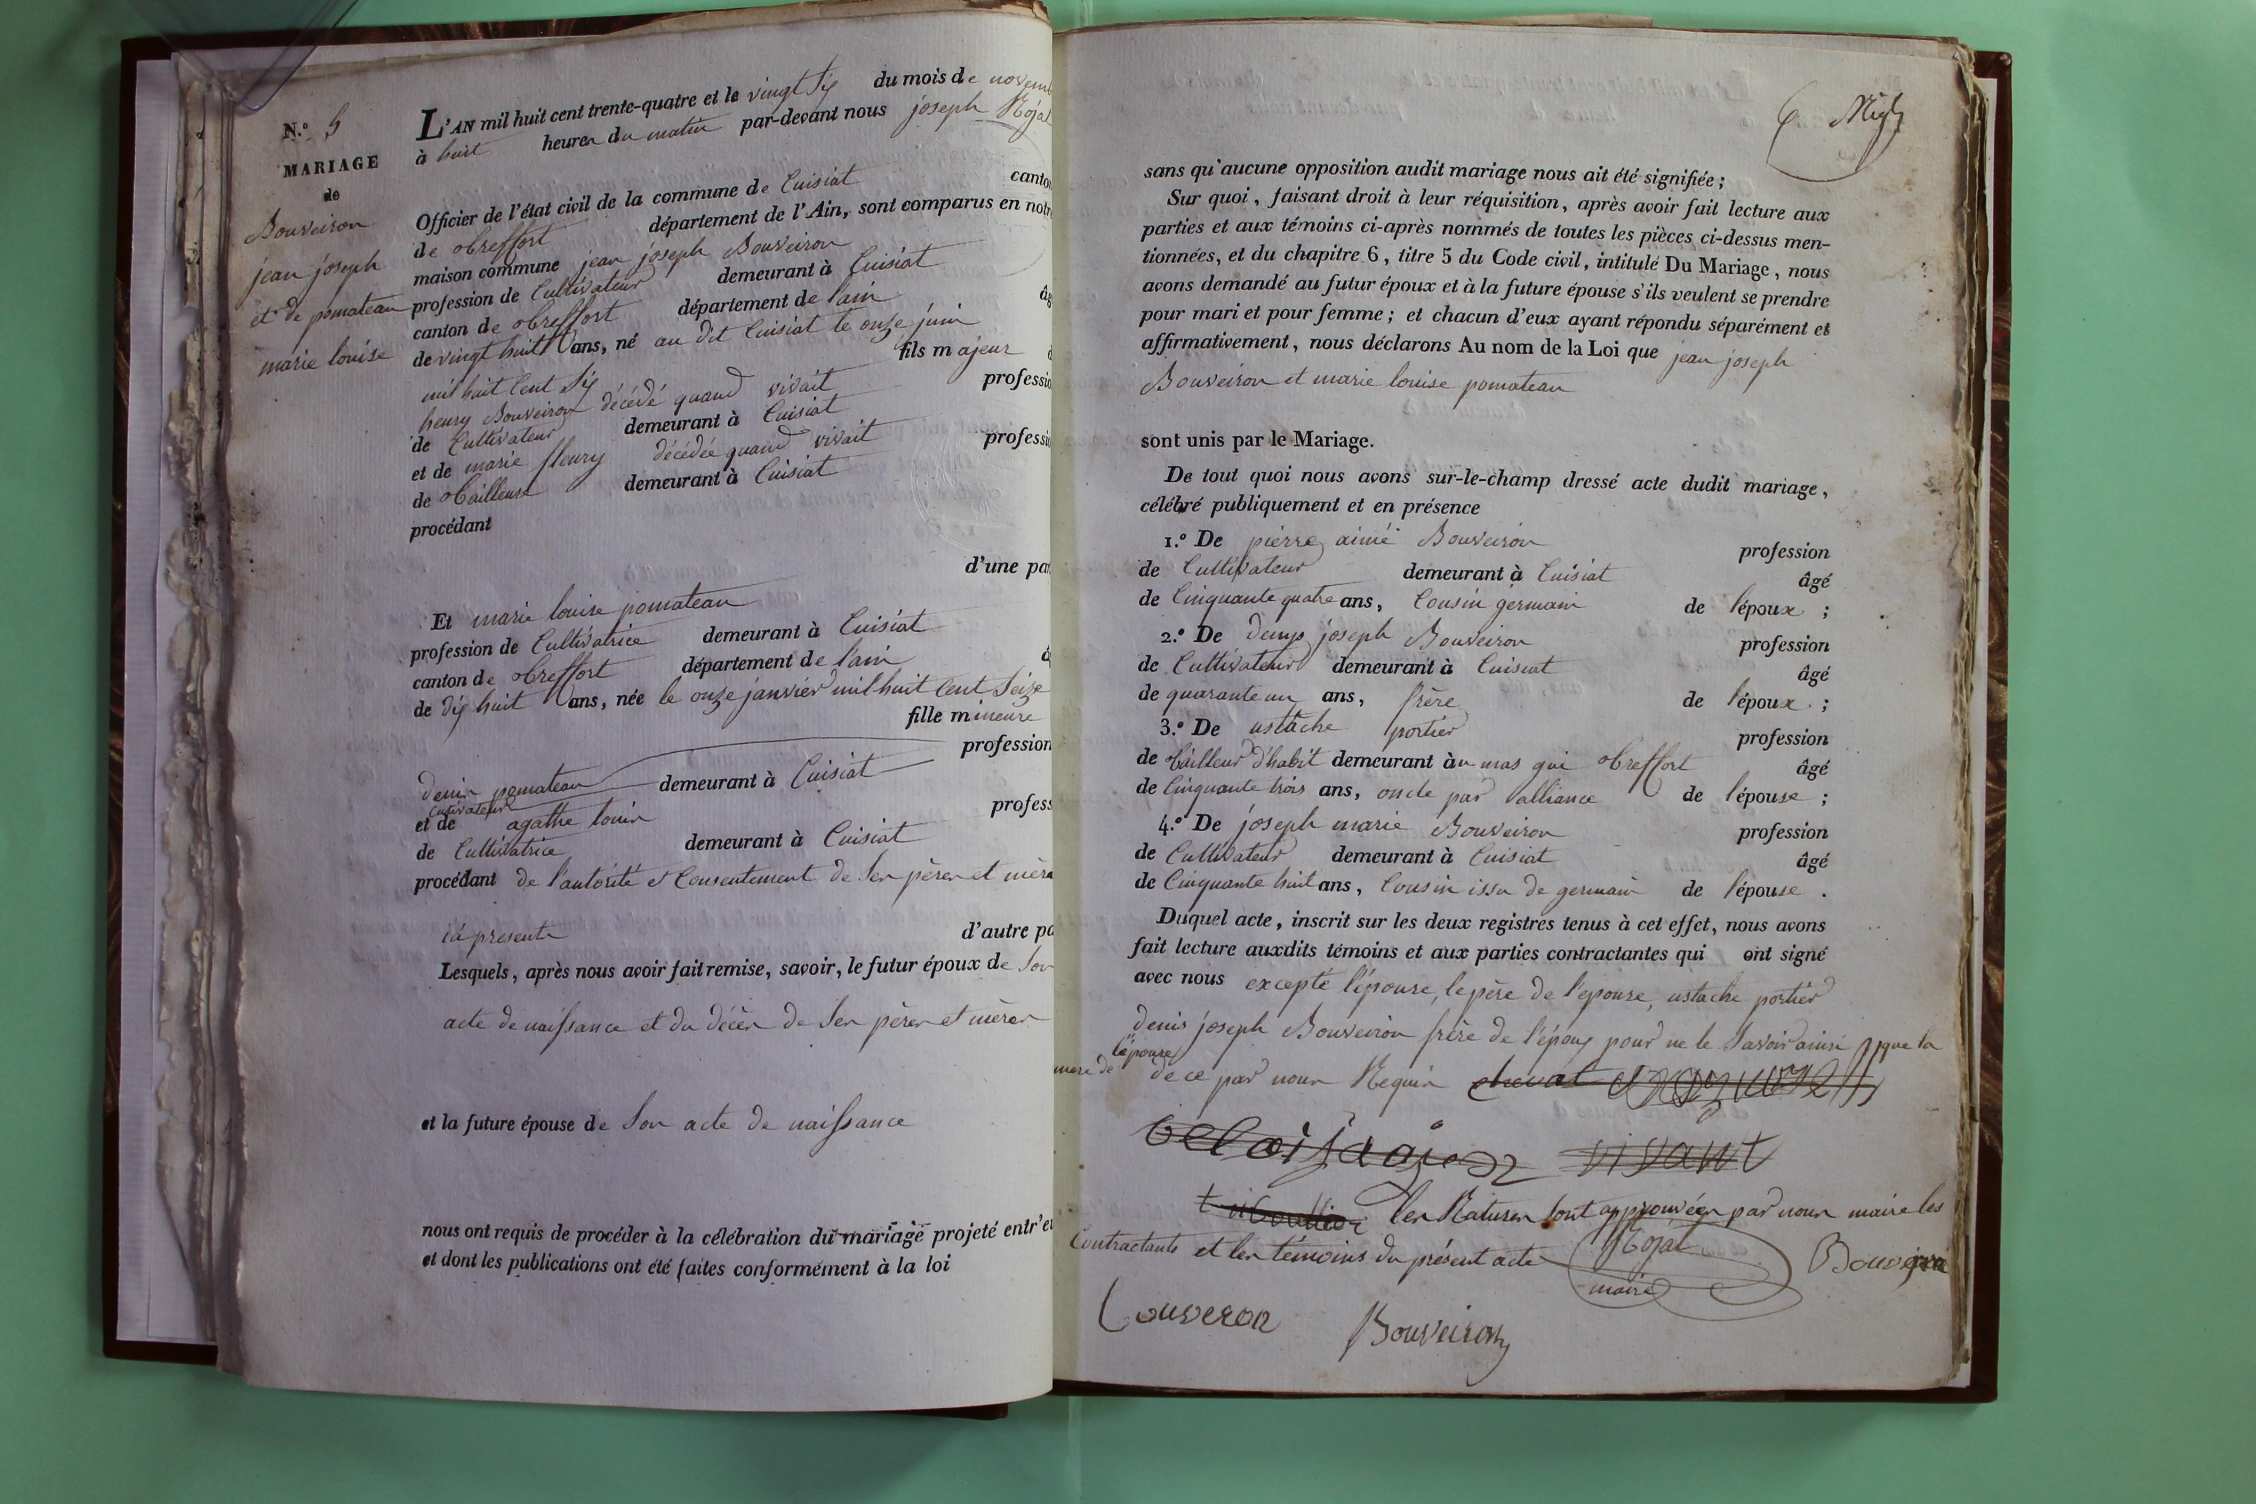 N.º 5
MARIAGE
de
Bouveiron
jean joseph
et de pomateau
marie louise
L'AN mil huit cent trente-quatre et le vingt six du mois de novemb
à huit heures du matin par-devant nous joseph Rojat
Officier de l'état civil de la commune de Cuisiat canton
de treffort département de l'Ain, sont comparus en notre
maison commune jean joseph Bouveiron
profession de Cultivateur demeurant à Cuisiat
canton de treffort département de l'ain âg
de vingt huit ans, né au dit Cuisiat le onze juin
mil huit Cent Six fils majeur d
henry Bouveiron décédé quand vivait professio
de Cultivateur demeurant à Cuisiat
et de marie fleury décédée quand vivait professio
de tailleuse demeurant à Cuisiat
procédant
d'une par
Et marie louise pomateau
profession de Cultivatrice demeurant à Cuisiat
canton de treffort département de l'ain â
de dix huit ans, née le onze janvier mil huit Cent Seize
fille mineure
profession
denis pomateau demeurant à Cuisiat
cultivateur
et de agathe profess
de Cultivatrice demeurant à Cuisiat
procédant de l'autorité et Consentement de Ses pères et mère
ici présents d'autre pa
Lesquels, après nous avoir fait remise, savoir, le futur époux de Son
acte de naissance et du décès de Ses pères et mères
et la future épouse de Son acte de naissance
nous ont requis de procéder à la célébration du mariage projeté entr'eu
et dont les publications ont été faites conformément à la loi
6
sans qu'aucune opposition audit mariage nous ait été signifiée ;
Sur quoi, faisant droit à leur réquisition, après avoir fait lecture aux
parties et aux témoins ci-après nommés de toutes les pièces ci-dessus men-
tionnées, et du chapitre 6, titre 5 du Code civil, intitulé Du Mariage, nous
avons demandé au futur époux et à la future épouse s'ils veulent se prendre
pour mari et pour femme ; et chacun d'eux ayant répondu séparément et
affirmativement, nous déclarons Au nom de la Loi que jean joseph
Bouveiron et marie louise pomateau
sont unis par le Mariage.
De tout quoi nous avons sur-le-champ dressé acte dudit mariage,
célébré publiquement et en présence
1.º De pierre aimé Bouveiron profession
de Cultivateur demeurant à Cuisiat âgé
de Cinquante quatre ans, Cousin germain de l'époux ;
2.º De denys joseph Bouveiron profession
de Cultivateur demeurant à Cuisiat âgé
de quarante un ans, frère de l'époux ;
3.º De ustache portier profession
de tailleur d'habit demeurant àu mas gui treffort âgé
de Cinquante trois ans, oncle par alliance de l'épouse ;
4.º De joseph marie Bouveiron profession
de Cultivateur demeurant à Cuisiat âgé
de Cinquante huit ans, Cousin issu de germain de l'épouse .
Duquel acte, inscrit sur les deux registres tenus à cet effet, nous avons
fait lecture auxdits témoins et aux parties contractantes qui ont signé
avec nous excepté l'épouse, le père de l'epouse, ustache portier
denis joseph Bouveiron frère de l'époux pour ne le Savoir ainsi que la
mere de l'épouse de ce par nous Requis
vivant
les Ratures sont approuvées par nous maire les
Contractants et les témoins du présent acte Rojat
maire
Couveron Bouveiron